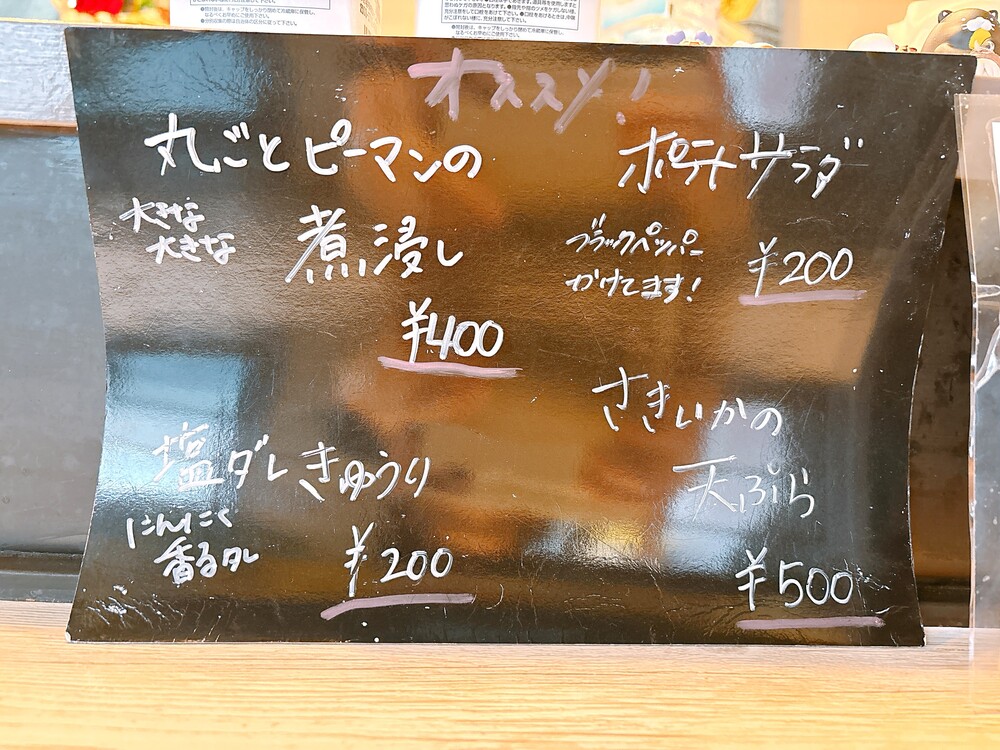 オススメ!
丸ごとピーマンの
大きな
大きな
煮浸し
¥400
ポテトサラダ
ブラックペッパー
かけてます!
¥200
塩ダレきゅうり
にんにく
香るタレ
¥200
さきいかの
天ぷら
¥500